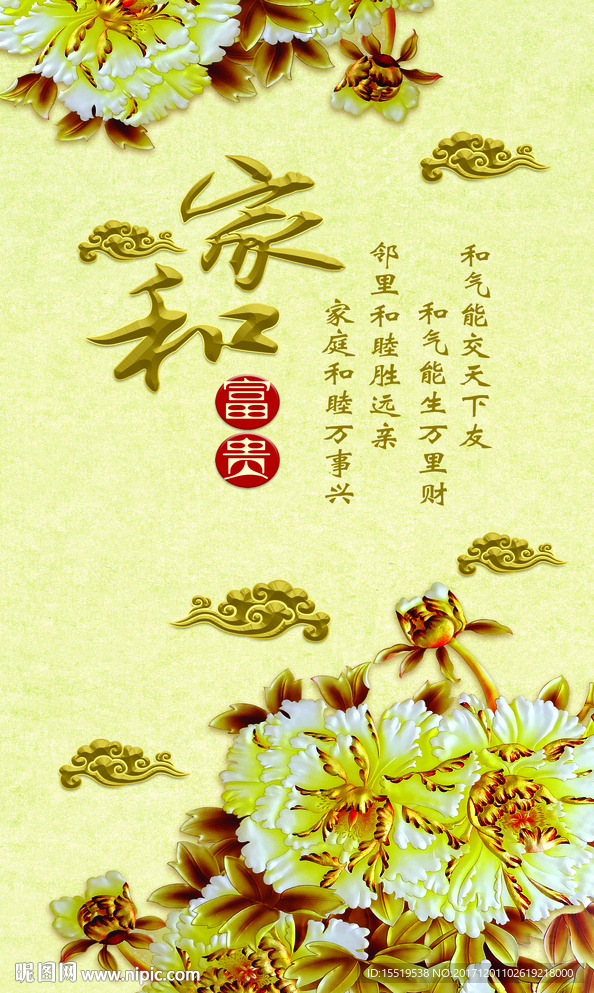 家和
富贵
和气能交天下友
和气能生万里财
邻里和睦胜远亲
家庭和睦万事兴
昵图网 www.nipic.com
ID:15519538 NO:20171201102619218000